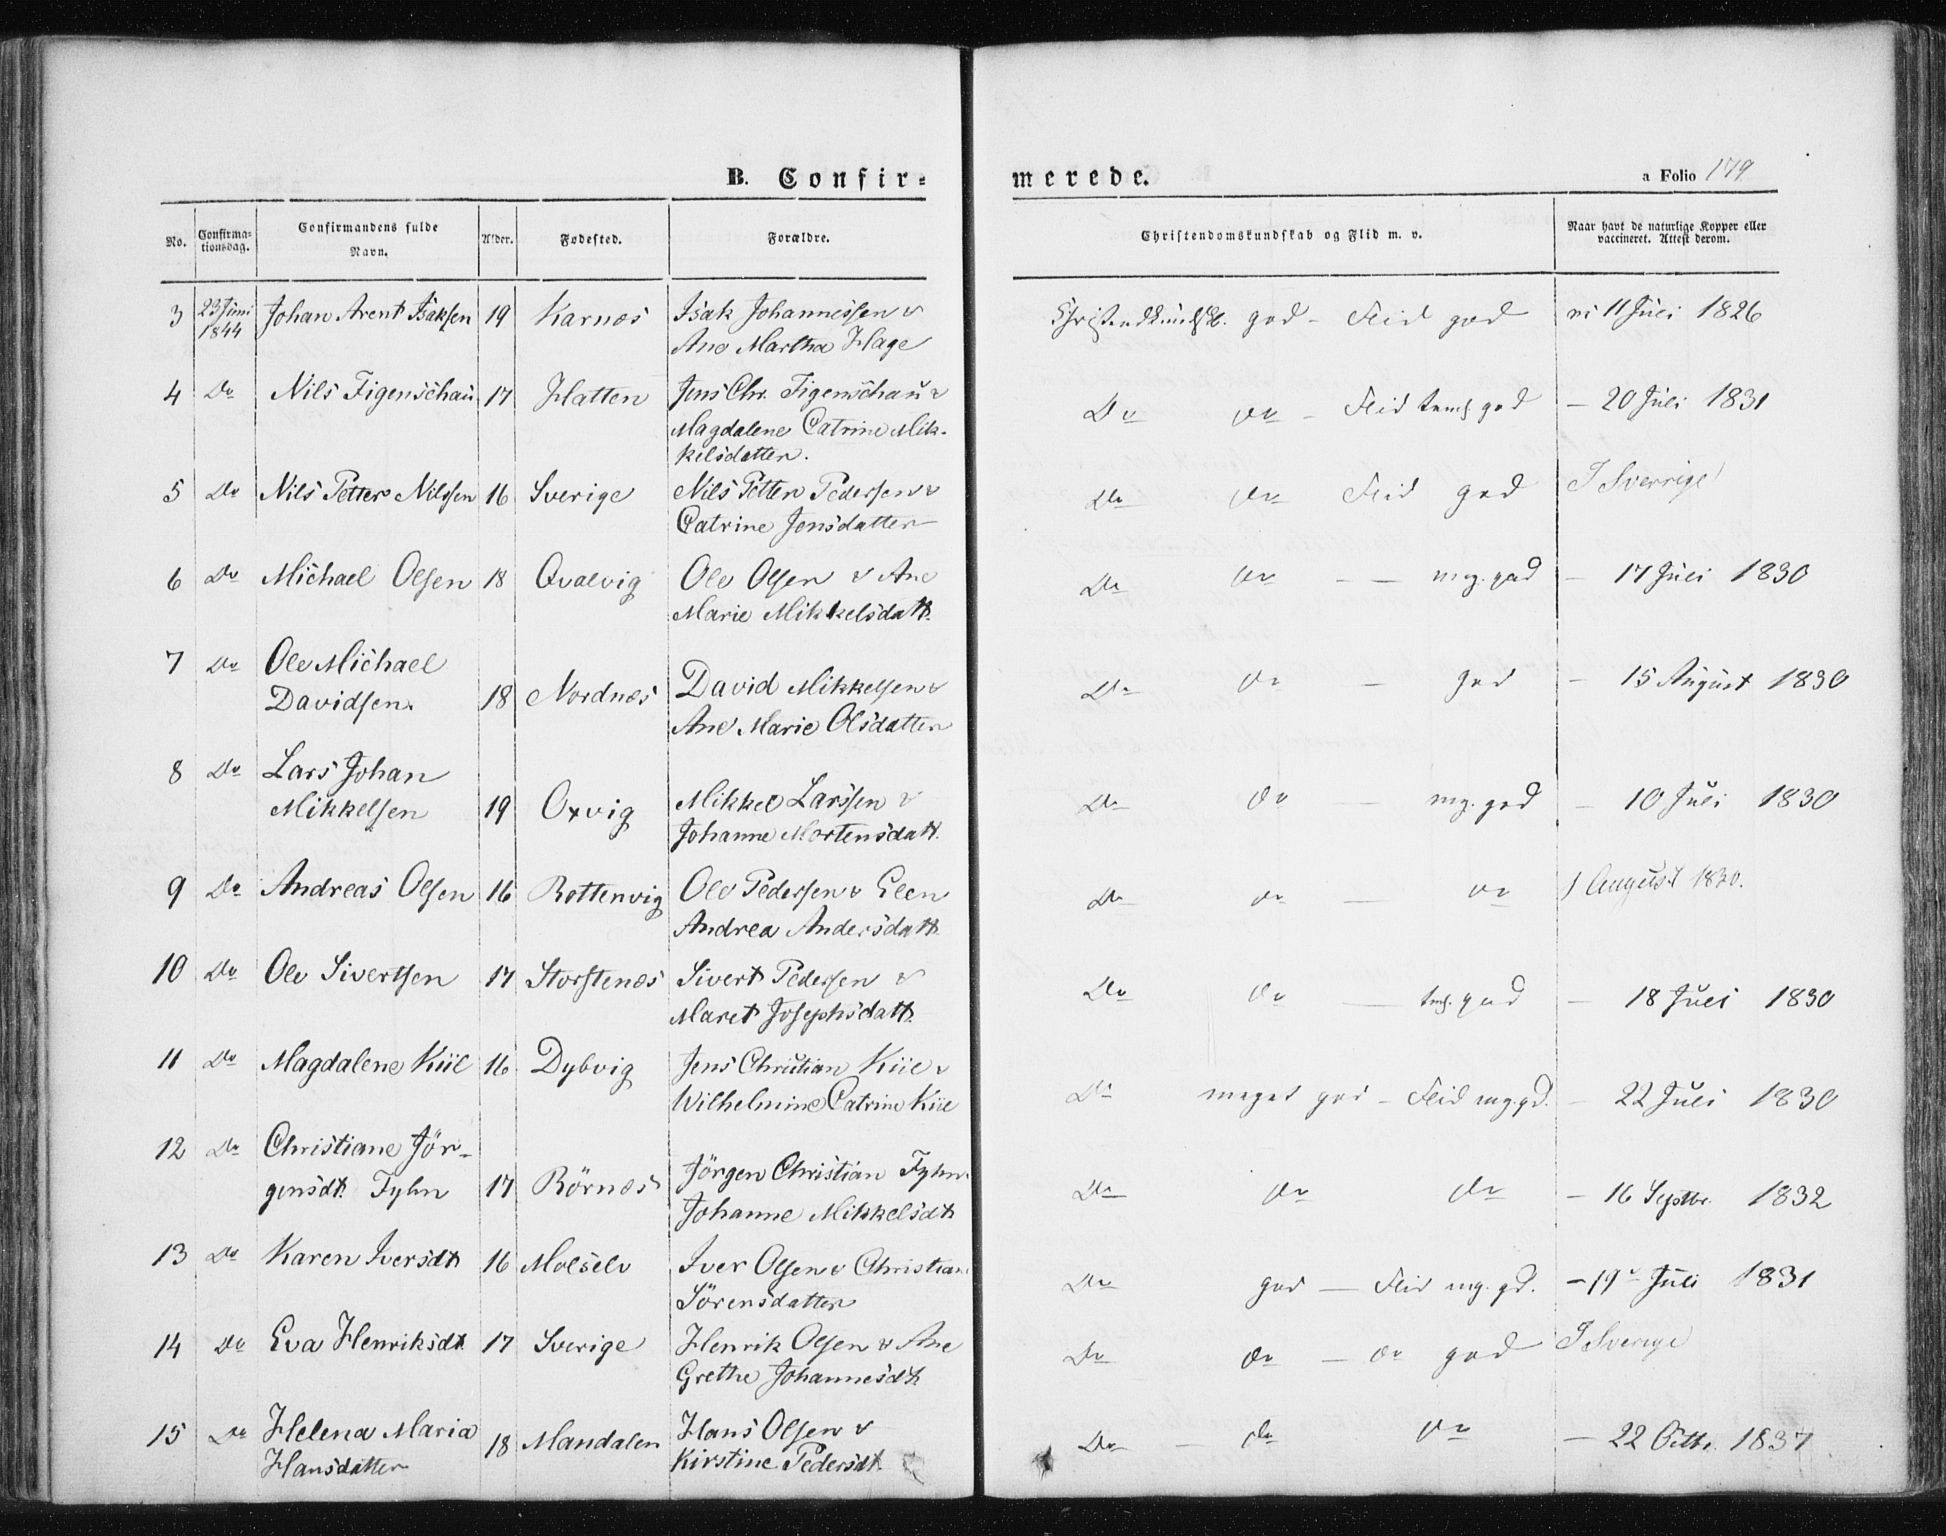 B. Confir-
merede.
a Folio 179
No.
Confirma-
tionsdag.
Confirmandens fulde
Navn.
Alder.
Fødested.
Forældre.
Christendomskundskab og Flid m. v.
Naar havt de naturlige Kopper eller
vaccineret. Attest derom.
3 23 Juni 1844 Johan Arent Isaksen 19 Karnæs Isak Johannessen &
Ane Martha Hage
Christendkundsk. god - Flid god 11 Juli 1826
4 Do Nils Figenschau 17 Hatten Jens Chr. Figenschau &
Magdalene Catrine Mik-
kelsdatter.
Do do - Flid temf god - 20 Juli 1831
5 Do Nils Petter Nilssen 16 Sverige Nils Petter Pedersen &
Catrine Jonsdatter
Do do Flid god I Sverrige
6 Do Michael Olsen 18 Qvalvig Ole Olsen & Ane
Marie Mikkelsdatt.
Do do - - mg. god - 17 Juli 1830
7 Do Ole Michael
Davidsen 18 Nordnæs David Mikkelsen &
Ane Marie Olsdatter
Do do - god - 15 August 1830
8 Do Lars Johan
Mikkelsen 19 Oxvig Mikkel Larssen &
Johanne Mortensdatt.
Do do - mg. god - 10 Juli 1830
9 Do Andreas Olsen 16 Rottenvig Ole Pedersen & Elen
Andrea Andersdatt.
Do do - do 1 August 1830.
10 Do Ole Sivertsen 17 Storstenæs Sivert Pedersen &
Maret Josephsdatt.
Do do - tmf. god - 18 Juli 1830
11 Do Magdalene Kiil 16 Dybvig Jens Christian Kiil &
Wilhelmine Catrine Kiil
Do meget god - Flid mg. gd. - 22 Juli 1830
12 Do Christiane Jör-
gensdt. Fyhn 17 Rörnæs Jörgen Christian Fyhn
Johanne Mikkelsdt.
Do do do - 16 Septbr. 1832
13 Do Karen Iversdt 16 Molselv Iver Olsen & Christian
Sörensdatter
Do god - Flid mg. gd. - 19 Juli 1831
14 Do Eva Henriksdt. 17 Sverige Henrik Olsen & Ane
Grethe Johannesdt.
Do do - do god I Sverige
15 Do Helena Maria
Hansdatter 18 Mandalen Hans Olsen &
Kirstine Pedersdt.
Do - do do - 22 Octbr. 1837